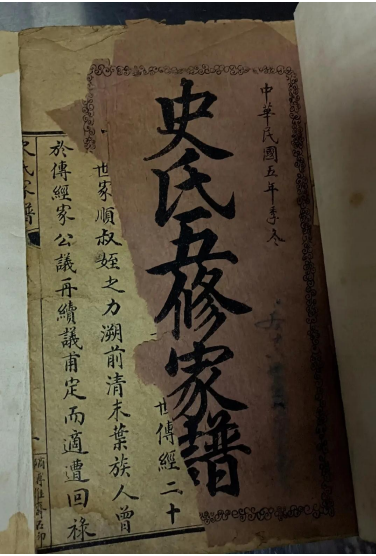 中華民國五年季冬
史氏五修家譜
世傳經二十
一世家順叔姪之力溯前清末葉族人曾
於傳經家公議再續議甫定而適遭回祿
史氏家譜